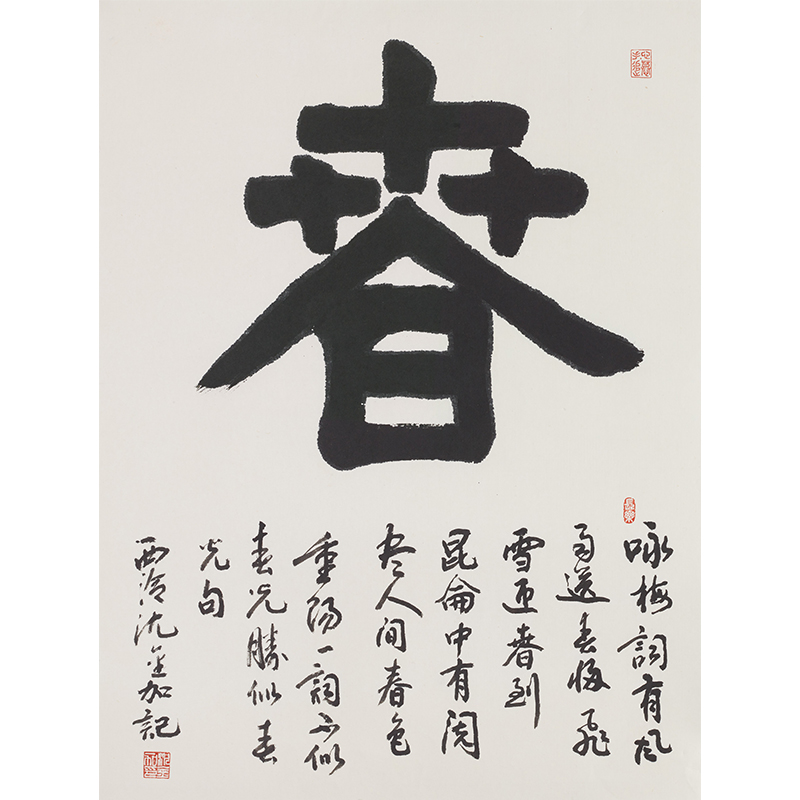 春
咏梅詞有风
雨送春归飛
雪迎春到
昆侖中有閲
尽人间春色
重陽一詞不似
春光勝似春
光句
西泠沈加記